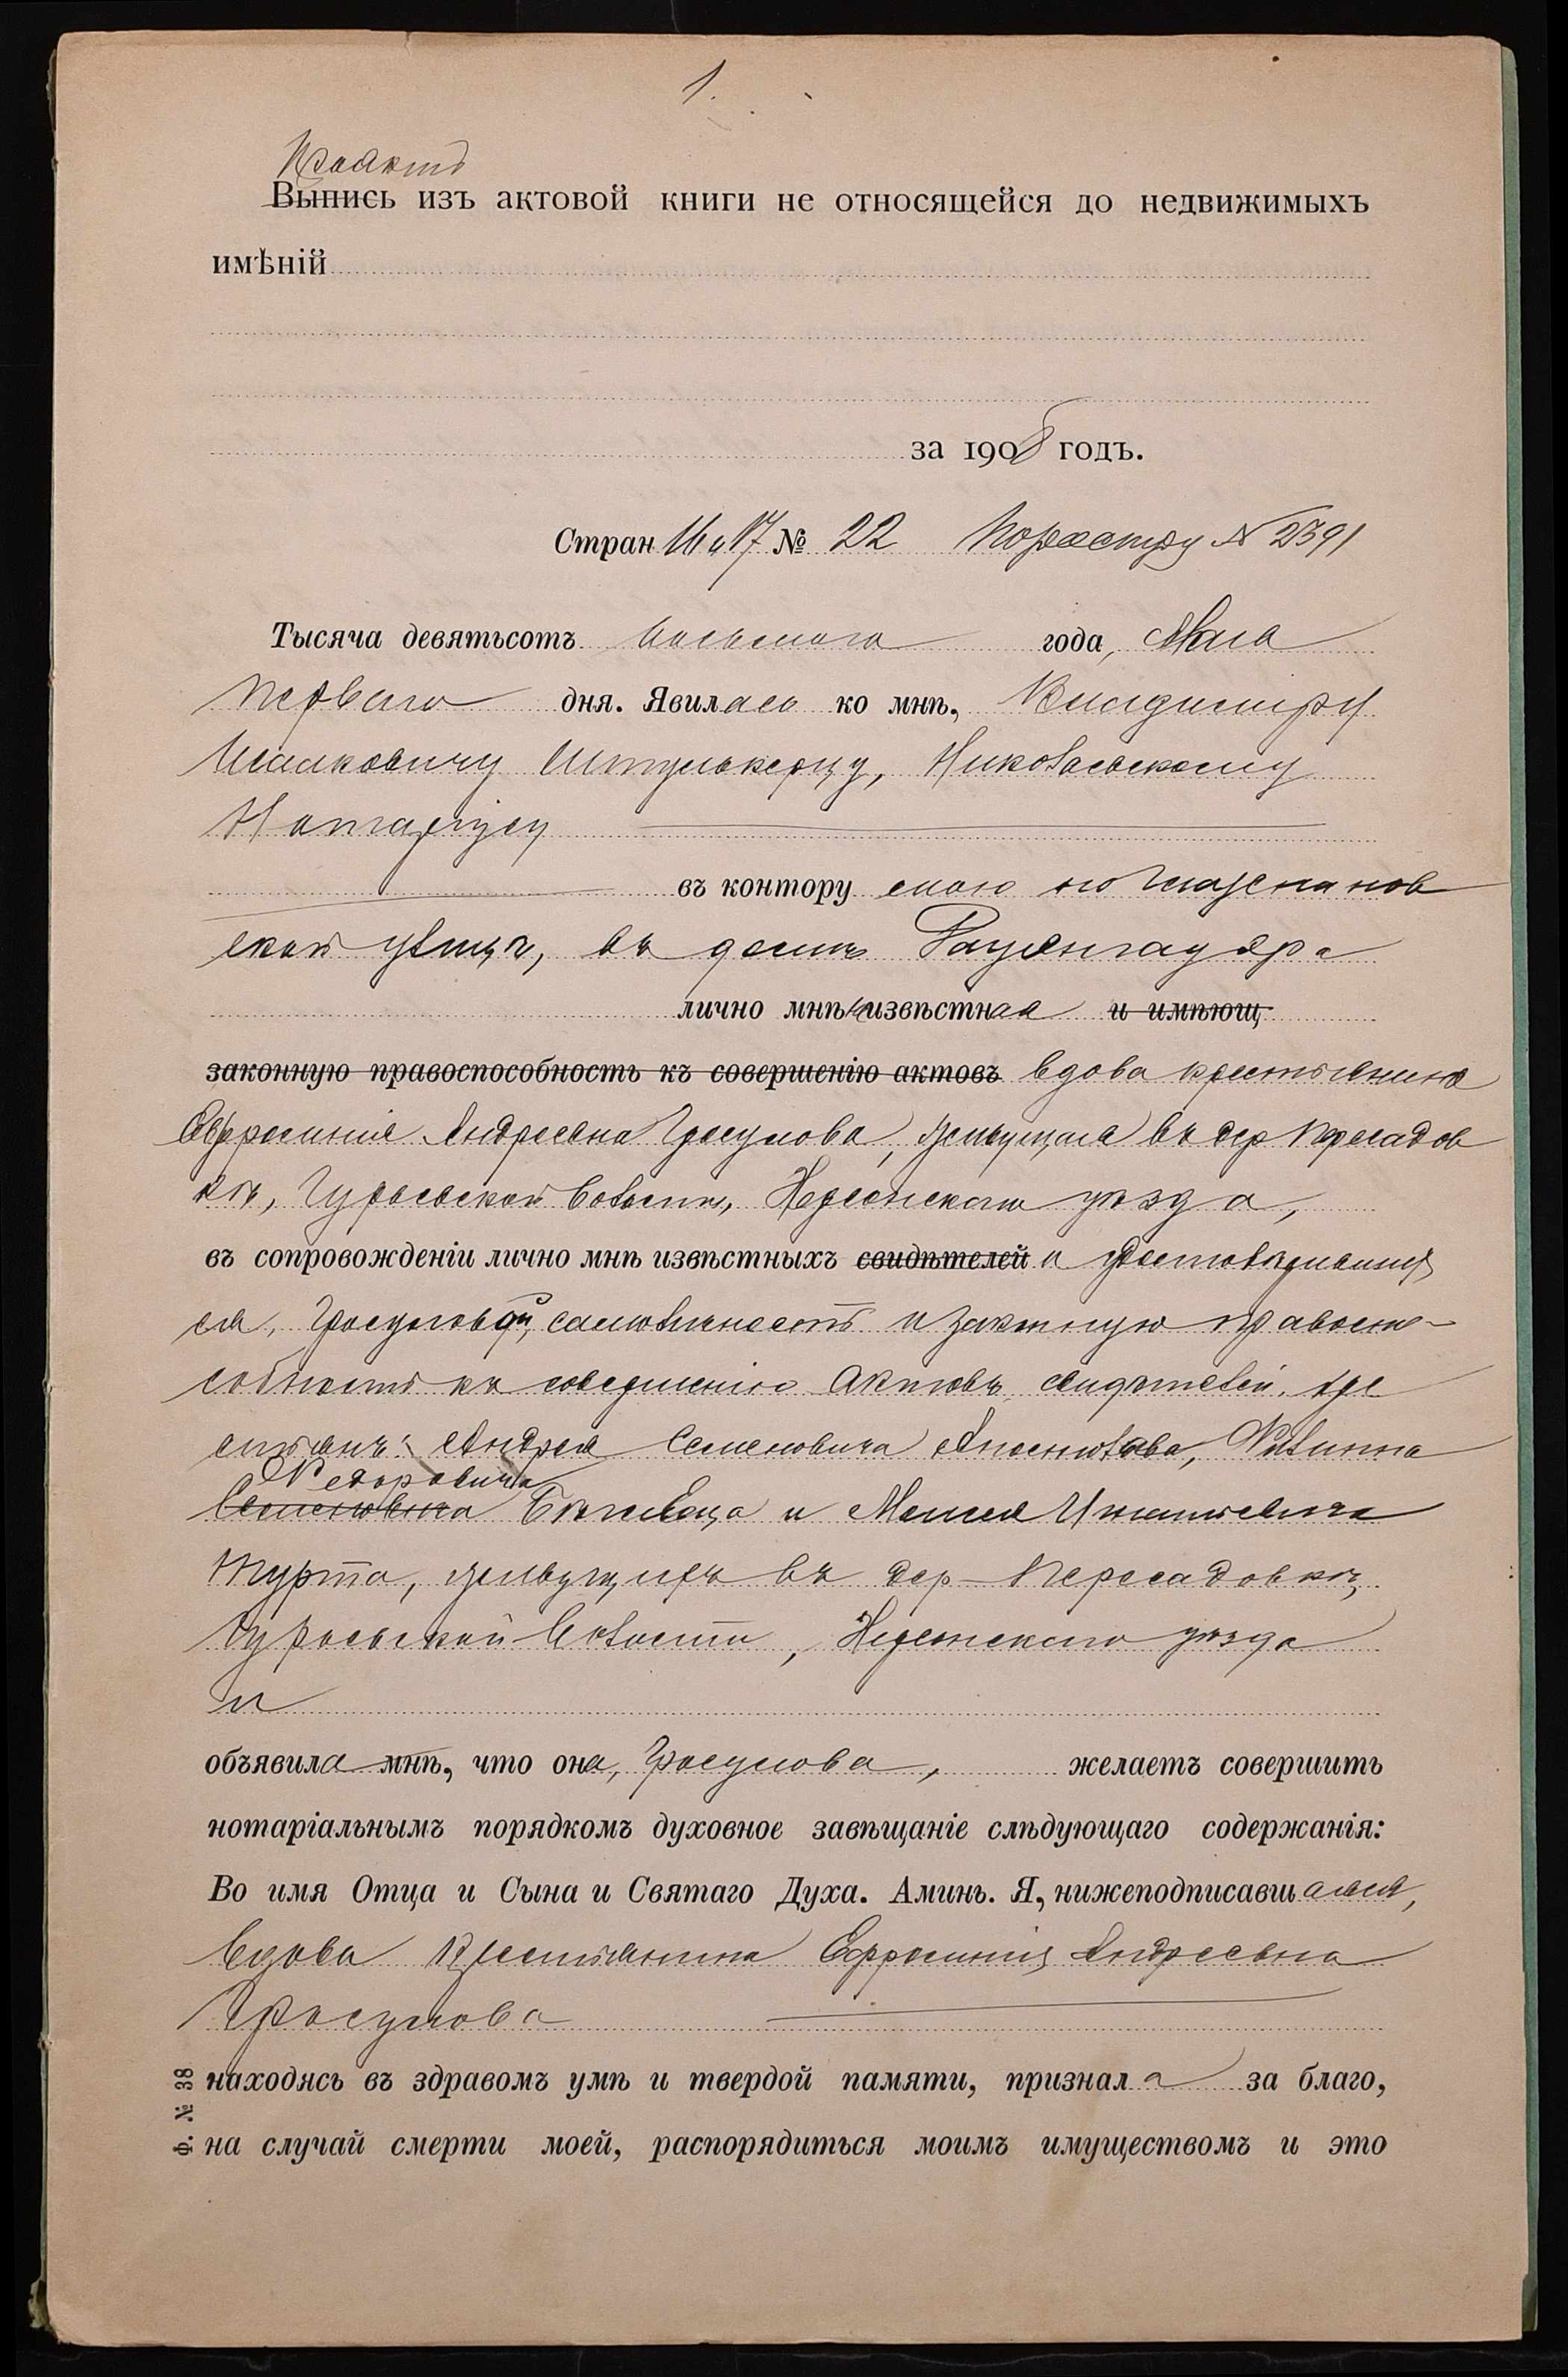 1.
Проектъ
Выпись изъ актовой книги не относящейся до недвижимыхъ
имѣній
за 1908 годъ.
Стран 16 и 17 № 22 По реестру № 2391
Тысяча девятьсотъ восьмого года, Мая
перваго дня. Явилась ко мнѣ, Владиміру
Исааковичу Штулькерцу, Николаевскому
Нотаріусу
въ контору мою по
ской улицѣ, въ домѣ
лично мнѣ неизвѣстная и имѣющ
законную правоспособность къ совершенію актовъ вдова крестьянина
Евфросинія Андреевна Гросулова, живущая въ дер Пересадов
кѣ, Гурьевской волости, Херсонскаго уѣзда,
въ сопровожденіи лично мнѣ извѣстныхъ свидѣтелей и удостовѣрившихъ
ея, Гросуловой, самоличность и законную правоспо-
собность къ совершенію актовъ свидѣтелей, кре
стьянъ: Андрея Семеновича Филиппа
Федоровича
Семеновича и Моисея Игнатьевича
Турта, живущихъ въ дер. Пересадовкѣ,
Гурьевской волости, Херсонскаго уѣзда
и
объявила мнѣ, что она, Гросулова, желаетъ совершить
нотаріальнымъ порядкомъ духовное завѣщаніе слѣдующаго содержанія:
Во имя Отца и Сына и Святаго Духа. Аминь. Я, нижеподписавшаяся,
вдова крестьянина Ефросинія Андреевна
Гросулова
находясь въ здравомъ умѣ и твердой памяти, признала за благо,
на случай смерти моей, распорядиться моимъ имуществомъ и это
Ф. № 38